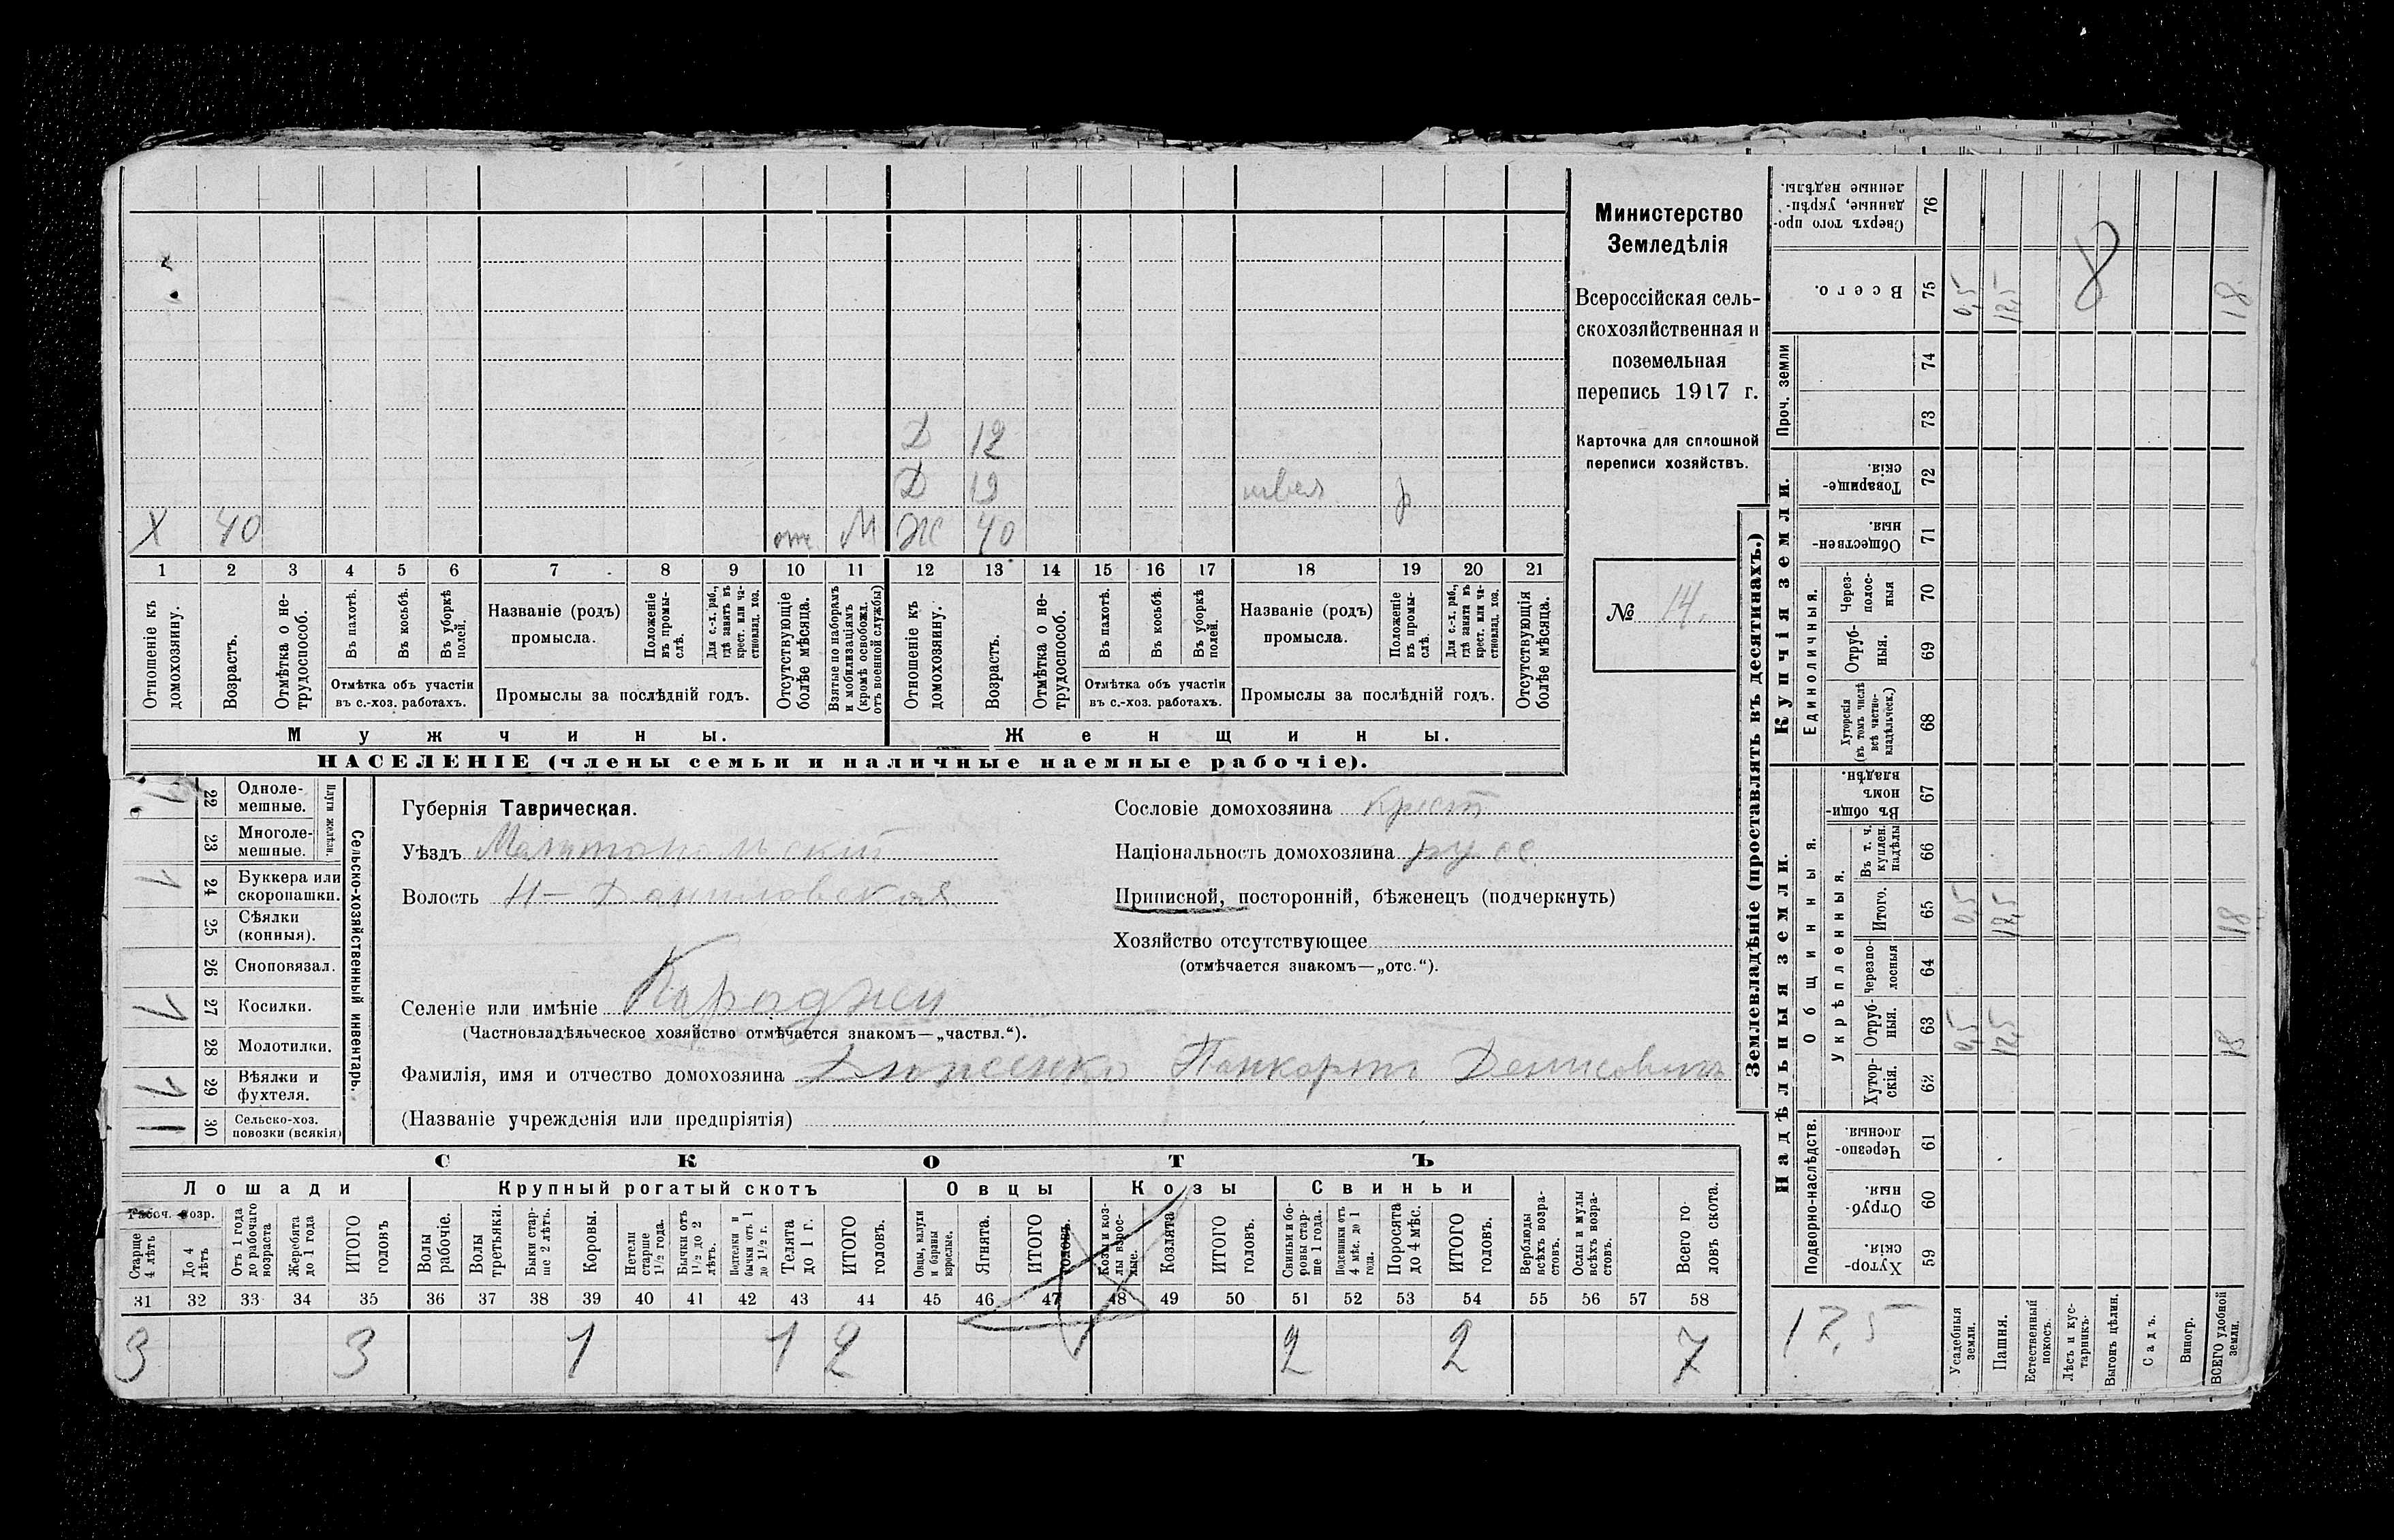 Д 12
Д 19 швея р
Х 40 отс М Ж 40
1 2 3 4 5 6 7 8 9 10 11 12 13 14 15 16 17 18 19 20 21
Отношеніе къ домохозяину.
Возрастъ.
Отмѣтка о не-трудоспособ.
Въ пахотѣ.
Въ косьбѣ.
Въ уборкѣ полей.
Отмѣтка объ участіи въ с.-хоз. работахъ.
Названіе (родъ) промысла.
Положеніе въ промы-слѣ.
Для с.-х. раб., гдѣ занятъ въ крест. или ча-стновлад. хоз.
Промыслы за послѣдній годъ.
Отсутствующіе болѣе мѣсяца.
Взятые по наборамъ и мобилизаціямъ (кромѣ освобожд. отъ военной службы)
Отношеніе къ домохозяину.
Возрастъ.
Отмѣтка о не-трудоспособ.
Въ пахотѣ.
Въ косьбѣ.
Въ уборкѣ полей.
Отмѣтка объ участіи въ с.-хоз. работахъ.
Названіе (родъ) промысла.
Положеніе въ промы-слѣ.
Для с.-х. раб., гдѣ занята въ крест. или ча-стновлад. хоз.
Промыслы за послѣдній годъ.
Отсутствующія болѣе мѣсяца.
Мужчины. Женщины.
НАСЕЛЕНІЕ (члены семьи и наличные наемные рабочіе).
Министерство
Земледѣлія
Всероссійская сель-
скохозяйственная и
поземельная
перепись 1917 г.
Карточка для сплошной
переписи хозяйствъ.
№ 14.
Сельско-хозяйственный инвентарь.
Плуги желѣзн.
22 Одноле-мешные.
23 Многоле-мешные.
24 Буккера или скоропашки.
25 Сѣялки (конныя).
26 Сноповязал.
27 Косилки.
28 Молотилки.
29 Вѣялки и фухтеля.
30 Сельско-хоз. повозки (всякія)
Губернія Таврическая.
Уѣздъ Мелитопольскій
Волость Н-Даниловская
Селеніе или имѣніе Караджи
(Частновладѣльческое хозяйство отмѣчается знакомъ—„частвл.“).
Фамилія, имя и отчество домохозяина Панкратъ Денисовичъ
(Названіе учрежденія или предпріятія)
Сословіе домохозяина Крест
Національность домохозяина русс.
Приписной, посторонній, бѣженецъ (подчеркнуть)
Хозяйство отсутствующее
(отмѣчается знакомъ—„отс.“).
СКОТЪ
Лошади Крупный рогатый скотъ Овцы Козы Свиньи
Рабоч. возр.
Старше 4 лѣтъ
До 4 лѣтъ
Отъ 1 года до рабочаго возраста
Жеребята до 1 года
ИТОГО головъ
Волы рабочіе.
Волы третьяки.
Быки стар-ше 2 лѣтъ.
Коровы.
Нетели старше 1½ года.
Бычки отъ 1½ до 2 лѣтъ.
Подтелки и бычки отъ 1 до 1½ г.
Телята до 1 г.
ИТОГО головъ.
Овцы, валухи и бараны взрослые.
Ягнята.
ИТОГО головъ.
Козы и коз-лы взрос-лые.
Козлята
ИТОГО головъ.
Свиньи и бо-ровы стар-ше 1 года.
Подсвинки отъ 4 мѣс. до 1 года.
Поросята до 4 мѣс.
ИТОГО головъ.
Верблюды всѣхъ возра-стовъ.
Ослы и мулы всѣхъ возра-стовъ.
Всего го-ловъ скота.
31 32 33 34 35 36 37 38 39 40 41 42 43 44 45 46 47 48 49 50 51 52 53 54 55 56 57 58
3 3 1 1 2 2 2 7
Землевладѣніе (проставлять въ десятинахъ.)
Купчія земли.
Надѣльныя земли.
Сверхъ того про-данные, укрѣп-ленные надѣлы. 76
Всего. 75 0,5 8 18
Проч. земли 74
73
Товарище-скія. 72
Обществен-ныя. 71
Единоличныя.
Через-полос-ныя 70
Отруб-ныя. 69
Хуторскія (въ томъ числѣ всѣ частно-владѣльческ.) 68
Общинныя.
Въ общи-номъ владѣн. 67
Укрѣпленныя.
Въ т. ч. куплен. надѣлы 66
Итого. 65 0,5 18
Черезпо-лосныя 64
Отруб-ныя. 63 0,5 18
Хутор-скія. 62
Подворно-наслѣдств.
Черезпо-лосныя. 61
Отруб-ныя. 60
Хутор-скія. 59
Усадебныя земли.
Пашня.
Естественный покосъ.
Лѣсъ и кус-тарникъ.
Выгонъ цѣлин.
Садъ.
Виногр.
ВСЕГО удобной земли.